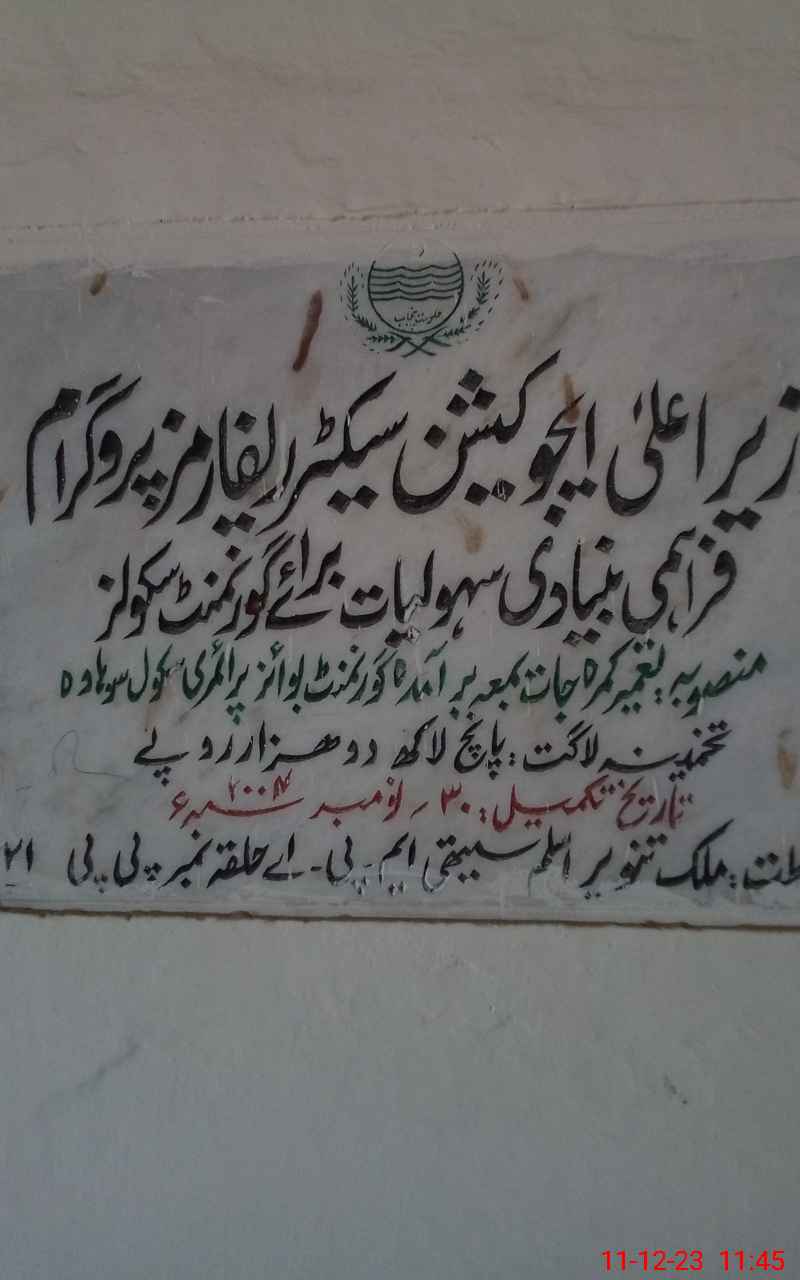 حکومت پنجاب
زیر اعلیٰ ایجوکیشن سیکٹر ریفارمز پروگرام
فراہمی بنیادی سہولیات برائے گورنمنٹ سکولز
منصوبہ: تعمیر کمرہ جات بمعہ برآمدہ گورنمنٹ بوائز پرائمری سکول سوہاوہ
تخمینہ لاگت: پانچ لاکھ دو ھزار روپے
تاریخ تکمیل: ۳۰؍ نومبر ۲۰۰۴ء
طت: ملک تنویر اسلم سیتھی ایم۔پی۔اے حلقہ نمبر پی پی ۲۱
11-12-23 11:45